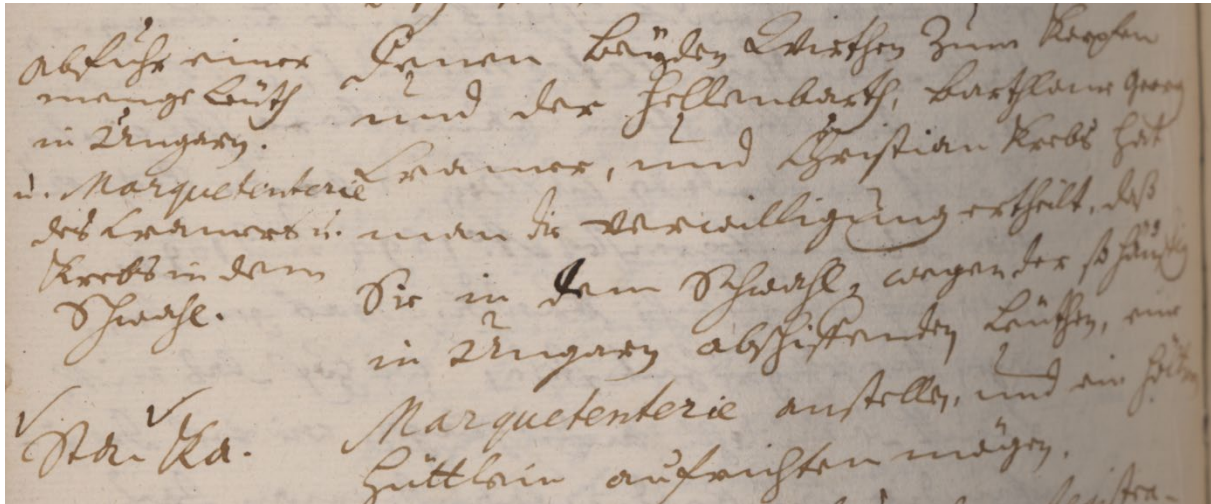 abfuhr einer
menge Leüth
in Ungarn.
u. Marquetenterie
des Cramers u.
Krebs in dem
Schwahl.
Sta. Ka.
Denen beyden Wirthen zum Karpfen
und der Hellenbarth, Barthlome Georg
Cramer, und Christian Krebs hat
man die verwilligung ertheilt, daß
Sie in dem Schwahl, wegen der so häuffig
in Ungarn abschiffenden Leüthen, eine
Marquetenterie anstellen, und ein höltzen
Hüttlein aufrichten mögen.